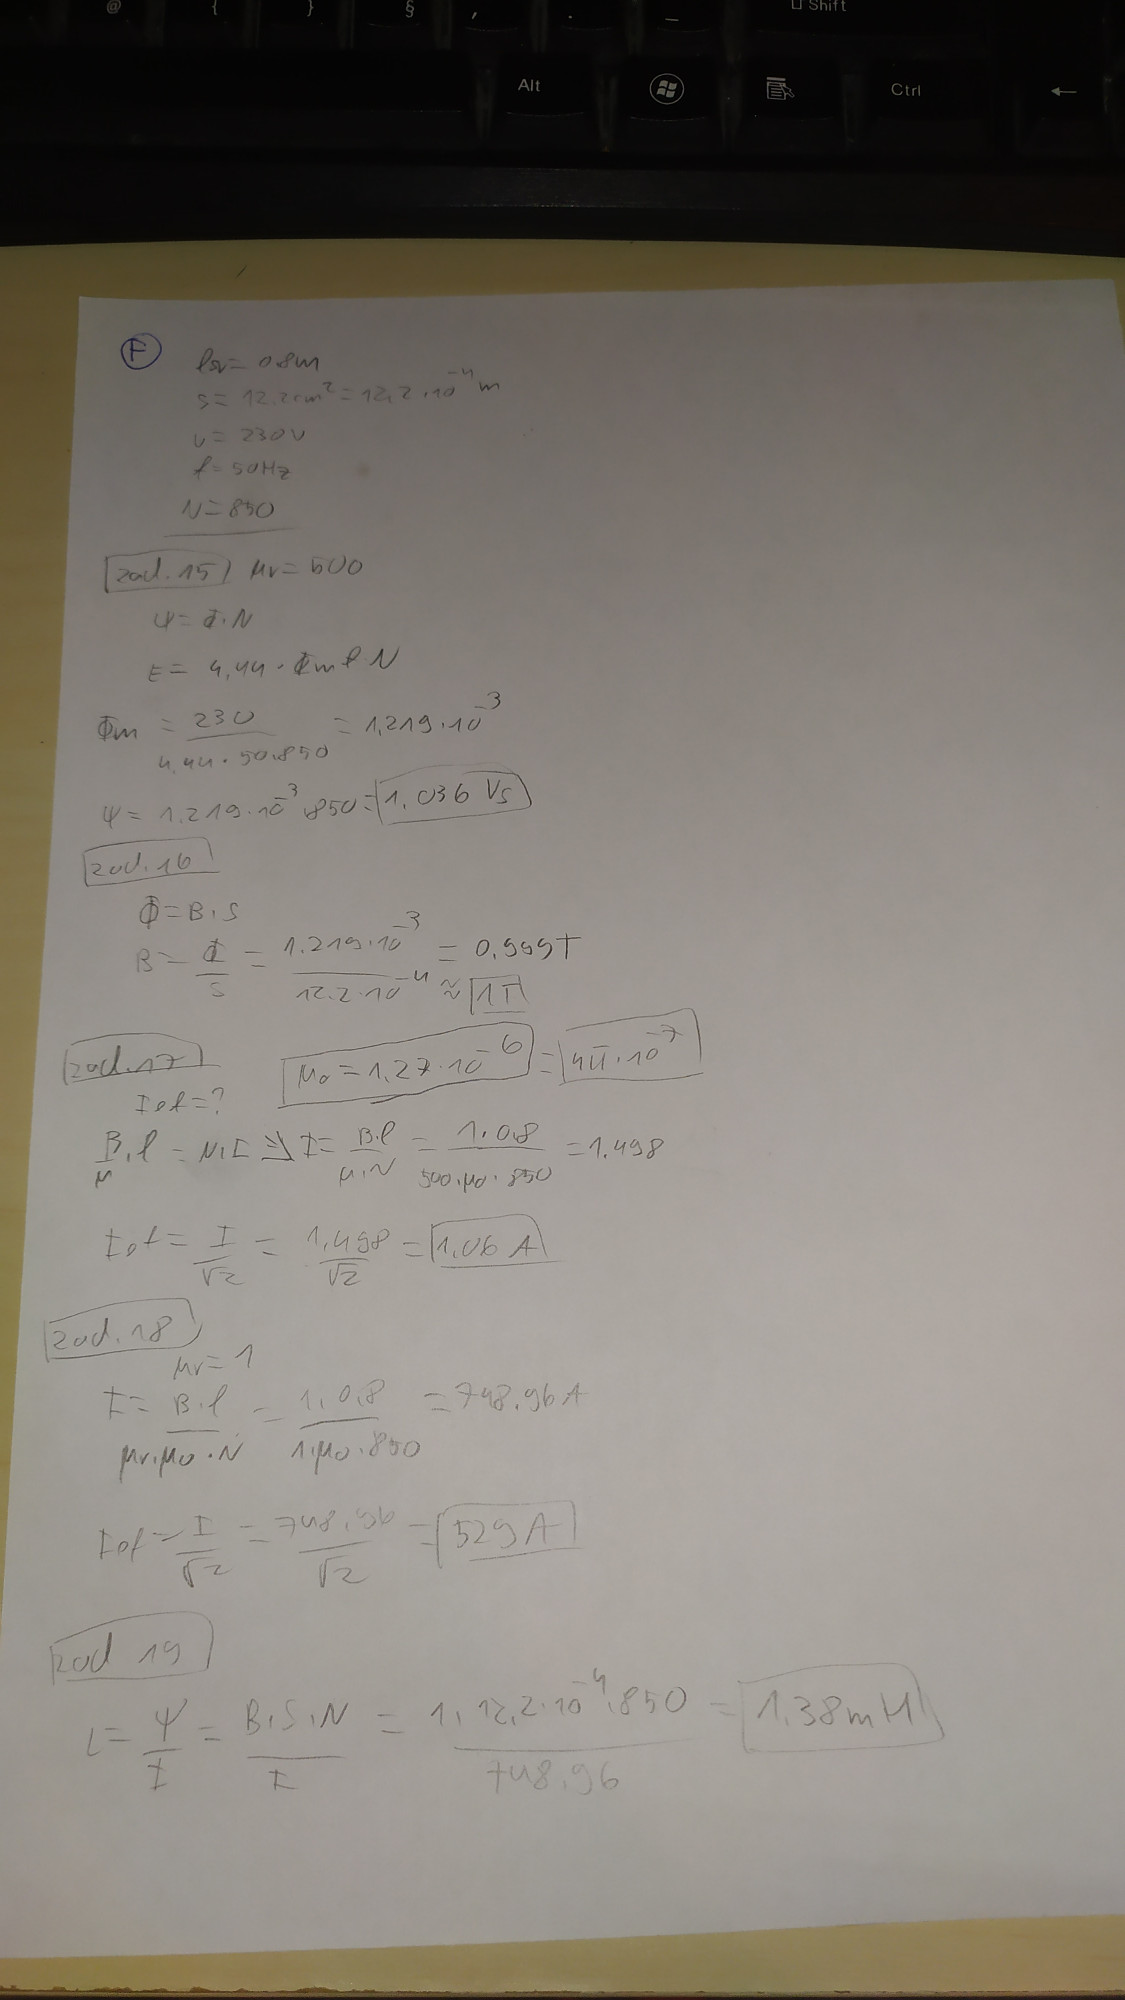 @ { } § , . _ Shift
Alt Ctrl ←
F
lśr = 0.8m
s = 12.2cm² = 12,2 · 10⁻⁴ m
U = 230V
f = 50Hz
N = 850
zad. 15 μr = 500
Ψ = Φ · N
E = 4,44 · Φm f N
Φm = 230 / 4,44 · 50 · 850 = 1,219 · 10⁻³
Ψ = 1.219 · 10⁻³ · 850 = 1,036 Vs
zad. 16
Φ = B · S
B = Φ / S = 1.219 · 10⁻³ / 12.2 · 10⁻⁴ = 0,999T
≈ 1T
zad. 17 μ₀ = 1,27 · 10⁻⁶ = 4π · 10⁻⁷
Ief = ?
B / μ · l = N · I ⇒ I = B · l / μ · N = 1 · 0.8 / 500 · μ₀ · 850 = 1.498
Ief = I / √2 = 1,498 / √2 = 1,06 A
zad. 18
μr = 1
I = B · l / μr · μ₀ · N = 1 · 0,8 / 1 · μ₀ · 850 = 748,96 A
Ief = I / √2 = 748,96 / √2 = 529 A
zad 19
L = Ψ / I = B · S · N / I = 1 · 12,2 · 10⁻⁴ · 850 / 748,96 = 1,38mH